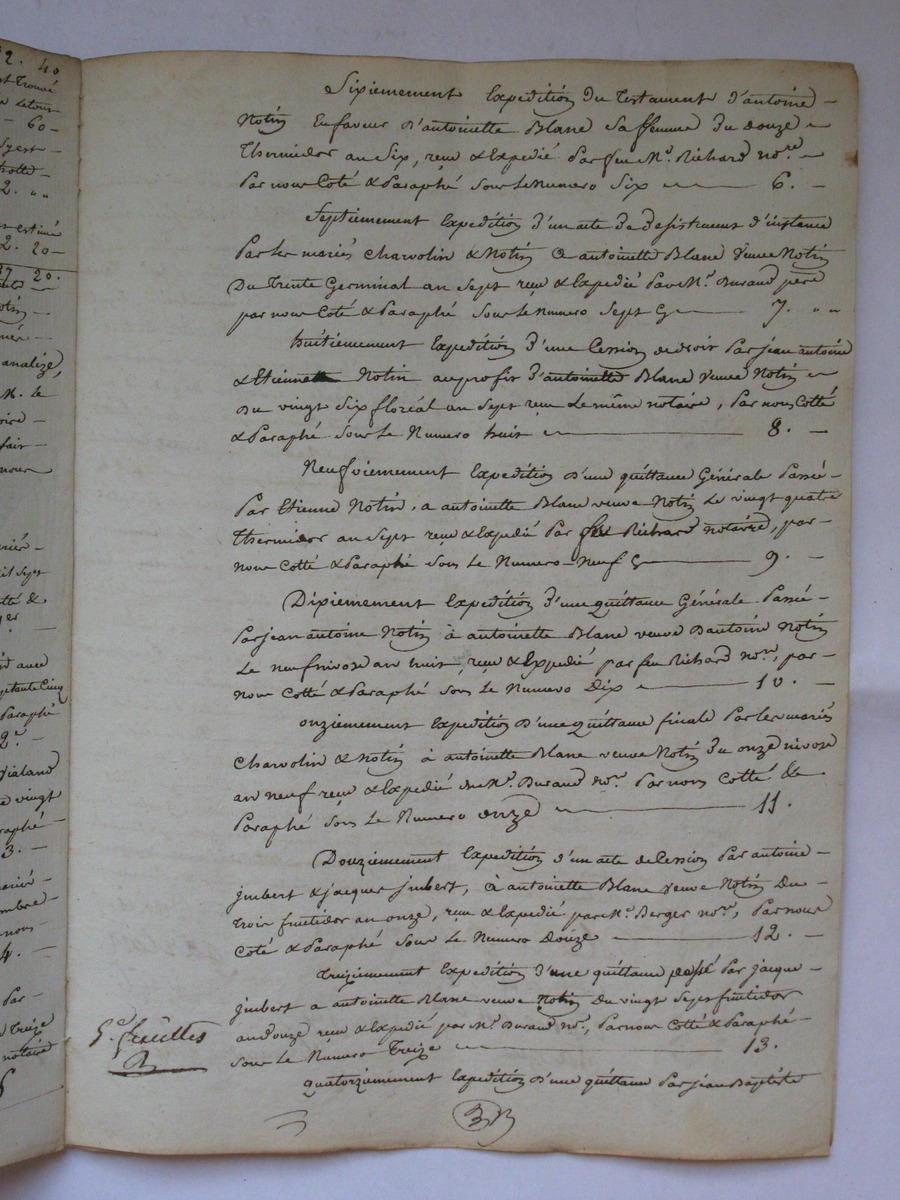 Sixiemement Expedition du Testament d'antoine
Notin En faveur d'antoinette Blanc Sa femme du douze
Thermidor an Six, reçu & Expedié Par feu Me. Richard nore.
Par nous Coté & Paraphé Sous Le Numero Six 6.
Septiemement Expedition d'un acte de desistement d'instance
Par Les mariés Charvolin & Notin a antoinette Blanc Veuve Notin
Du Trente Germinal an Sept reçu & Expedié Par Me. Durand pere
par nous Coté & Paraphé Sous Le Numero Sept 7. " "
huitiemement Expedition d'une Cession de droit Par jean antoine
& Etienne Notin au profit d'antoinette Blanc veuve Notin
Du vingt Six floréal an Sept reçu Le même notaire, Par nous Cotté
& Paraphé Sous Le Numero huit 8.
Neufviemement Expedition d'une quittance Générale Passé
Par Etienne Notin, a antoinette Blanc veuve Notin Le vingt quatre
Thermidor an Sept reçu & Expedié Par feu Richard notaire, par
nous Cotté & Paraphé Sous Le Numero Neuf 9.
Dixiemement Expedition d'une quittance Générale Passée
Par jean antoine Notin à antoinette Blanc veuve D'antoine Notin
Le neuf nivose an huit, reçu & Expedié par feu Richard nore, par
nous Cotté & Paraphé Sous Le Numero Dix 10.
onziemement Expedition d'une quittance finale Par Les mariés
Charvolin & Notin à antoinette Blanc veuve Notin du onze nivose
an neuf reçu & Expedié Me. Durand nore Par nous Cotté &
Paraphé Sous Le Numero onze 11.
Douziemement Expedition d'un acte de Cession Par antoine
jmbert & jacques jmbert, à antoinette Blanc veuve Notin Du
Trois fructidor an onze, reçu & Expedié par Me. Berger nore, Par nous
Coté & Paraphé Sous Le Numero Douze 12.
Treiziemement Expedition d'une quittance passé Par jacque
jmbert a antoinette Blanc veuve Notin Du vingt Sept fructidor
an douze reçu & Expedié par Me. Durand nore, Par nous Cotté & Paraphé
Sous Le Numero Treize 13.
quatorziemement Expedition d'une quittance Par jean Baptiste